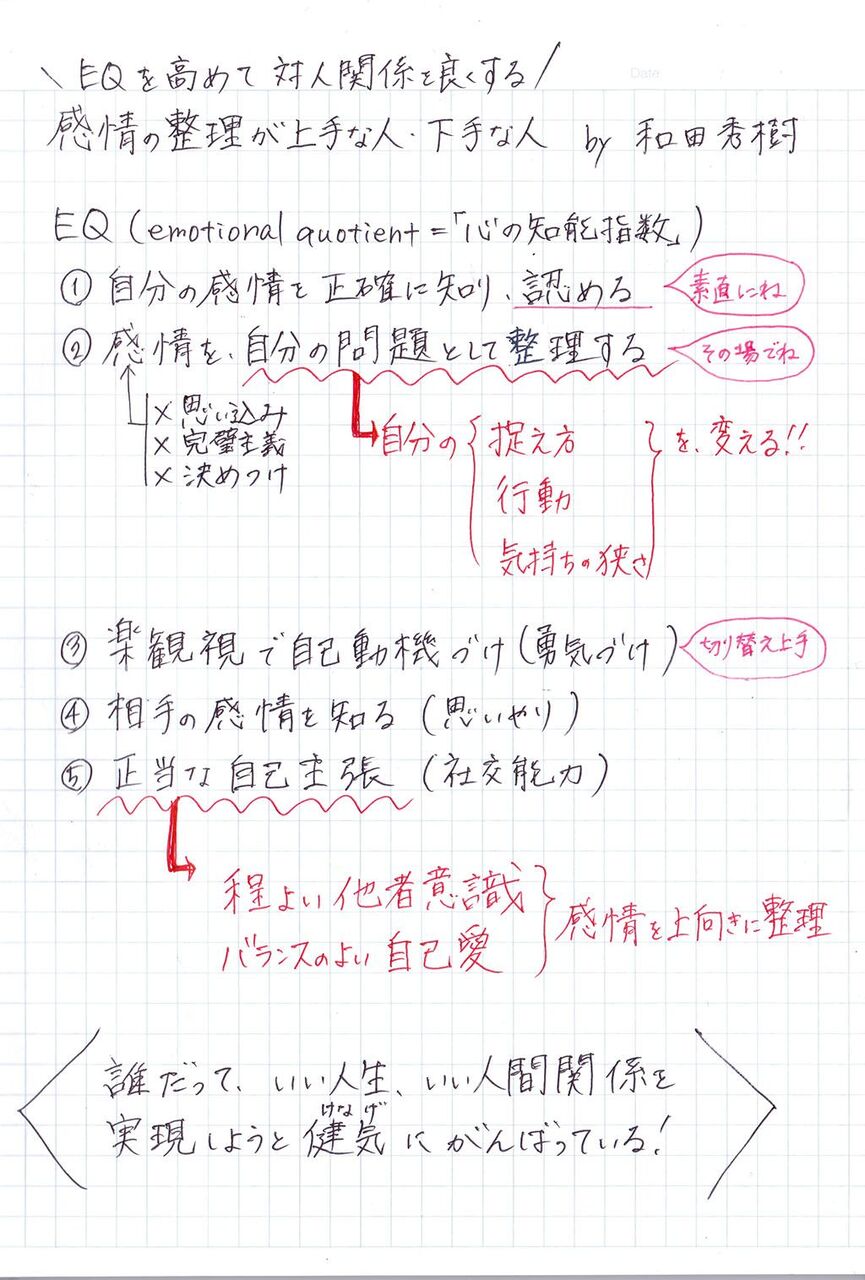 Date
\ EQを高めて対人関係を良くする/
感情の整理が上手な人・下手な人 by 和田秀樹
EQ (emotional quotient =「心の知能指数」)
① 自分の感情を正確に知り、認める
素直にね
② 感情を、自分の問題として整理する
その場でね
× 思い込み
× 完璧主義
× 決めつけ
自分の{捉え方
行動
気持ちの狭さ}を、変える!!
③ 楽観視で自己動機づけ(勇気づけ)
切り替え上手
④ 相手の感情を知る(思いやり)
⑤ 正当な自己主張(社交能力)
程よい他者意識
バランスのよい自己愛
}感情を上向きに整理
誰だって、いい人生、いい人間関係を
けなげ
実現しようと健気にがんばっている!